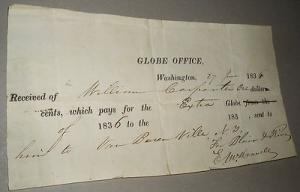 GLOBE OFFICE,
Washington, 27 183
Received of William Carpenter One dollar
cents, which pays for the Extra Globe, from the
of 1836 to the 183 , sent to
him to Van Buren Ville N.Y.
For Blair & Rives